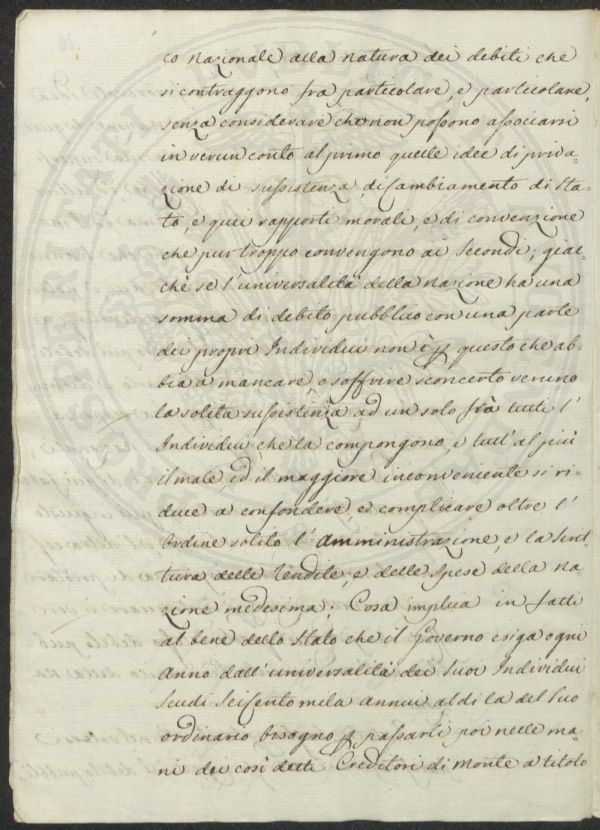 co Nazionale alla natura dei debiti che
si contraggono fra particolare, e particolare,
senza considerare che non possono associarsi
in verun conto al primo quelle idee di priva=
zione di sussistenza, di cambiamento di Sta=
to, e quei rapporti morali, e di convenzione
che pur troppo convengono ai secondi; giac=
chè se l'universalità della Nazione ha una
somma di debito pubblico con una parte
dei propri Individui non è p questo che ab=
bia a mancare, o soffrire sconcerto veruno
la solita sussistenza ad un solo frà tutti l'
Individui che la compongono, e tutt'al più
il male, ed il maggiore inconveniente si ri=
duce a confondere, e complicare oltre l'
ordine solito l'amministrazione, e la Scrit=
tura delle rendite, e delle spese della Na=
zione medesima; Cosa implica in fatti
al bene dello Stato che il Governo esiga ogni
Anno dall'universalità dei suoi Individui
Scudi Seicento mila annui al di là del suo
ordinario bisogno p passarli poi nelle ma=
ni dei così detti Creditori di Monte a titolo